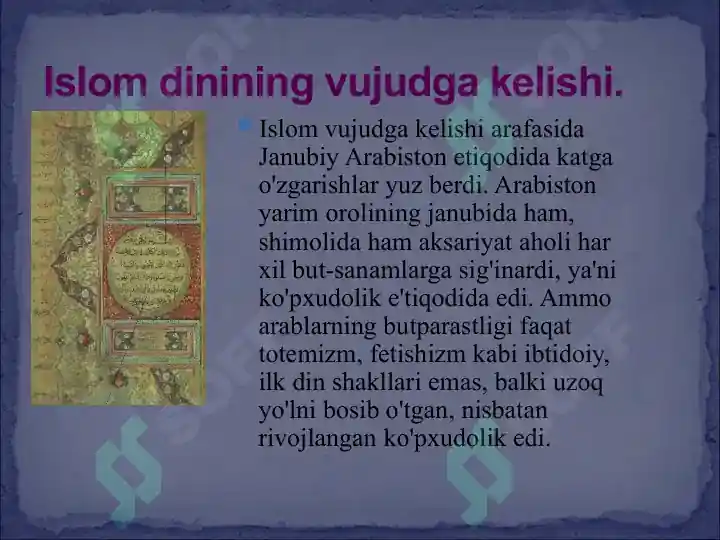 Islom dinining vujudga kelishi.
Islom vujudga kelishi arafasida
Janubiy Arabiston etiqodida katga
o'zgarishlar yuz berdi. Arabiston
yarim orolining janubida ham,
shimolida ham aksariyat aholi har
xil but-sanamlarga sig'inardi, ya'ni
ko'pxudolik e'tiqodida edi. Ammo
arablarning butparastligi faqat
totemizm, fetishizm kabi ibtidoiy,
ilk din shakllari emas, balki uzoq
yo'lni bosib o'tgan, nisbatan
rivojlangan ko'pxudolik edi.